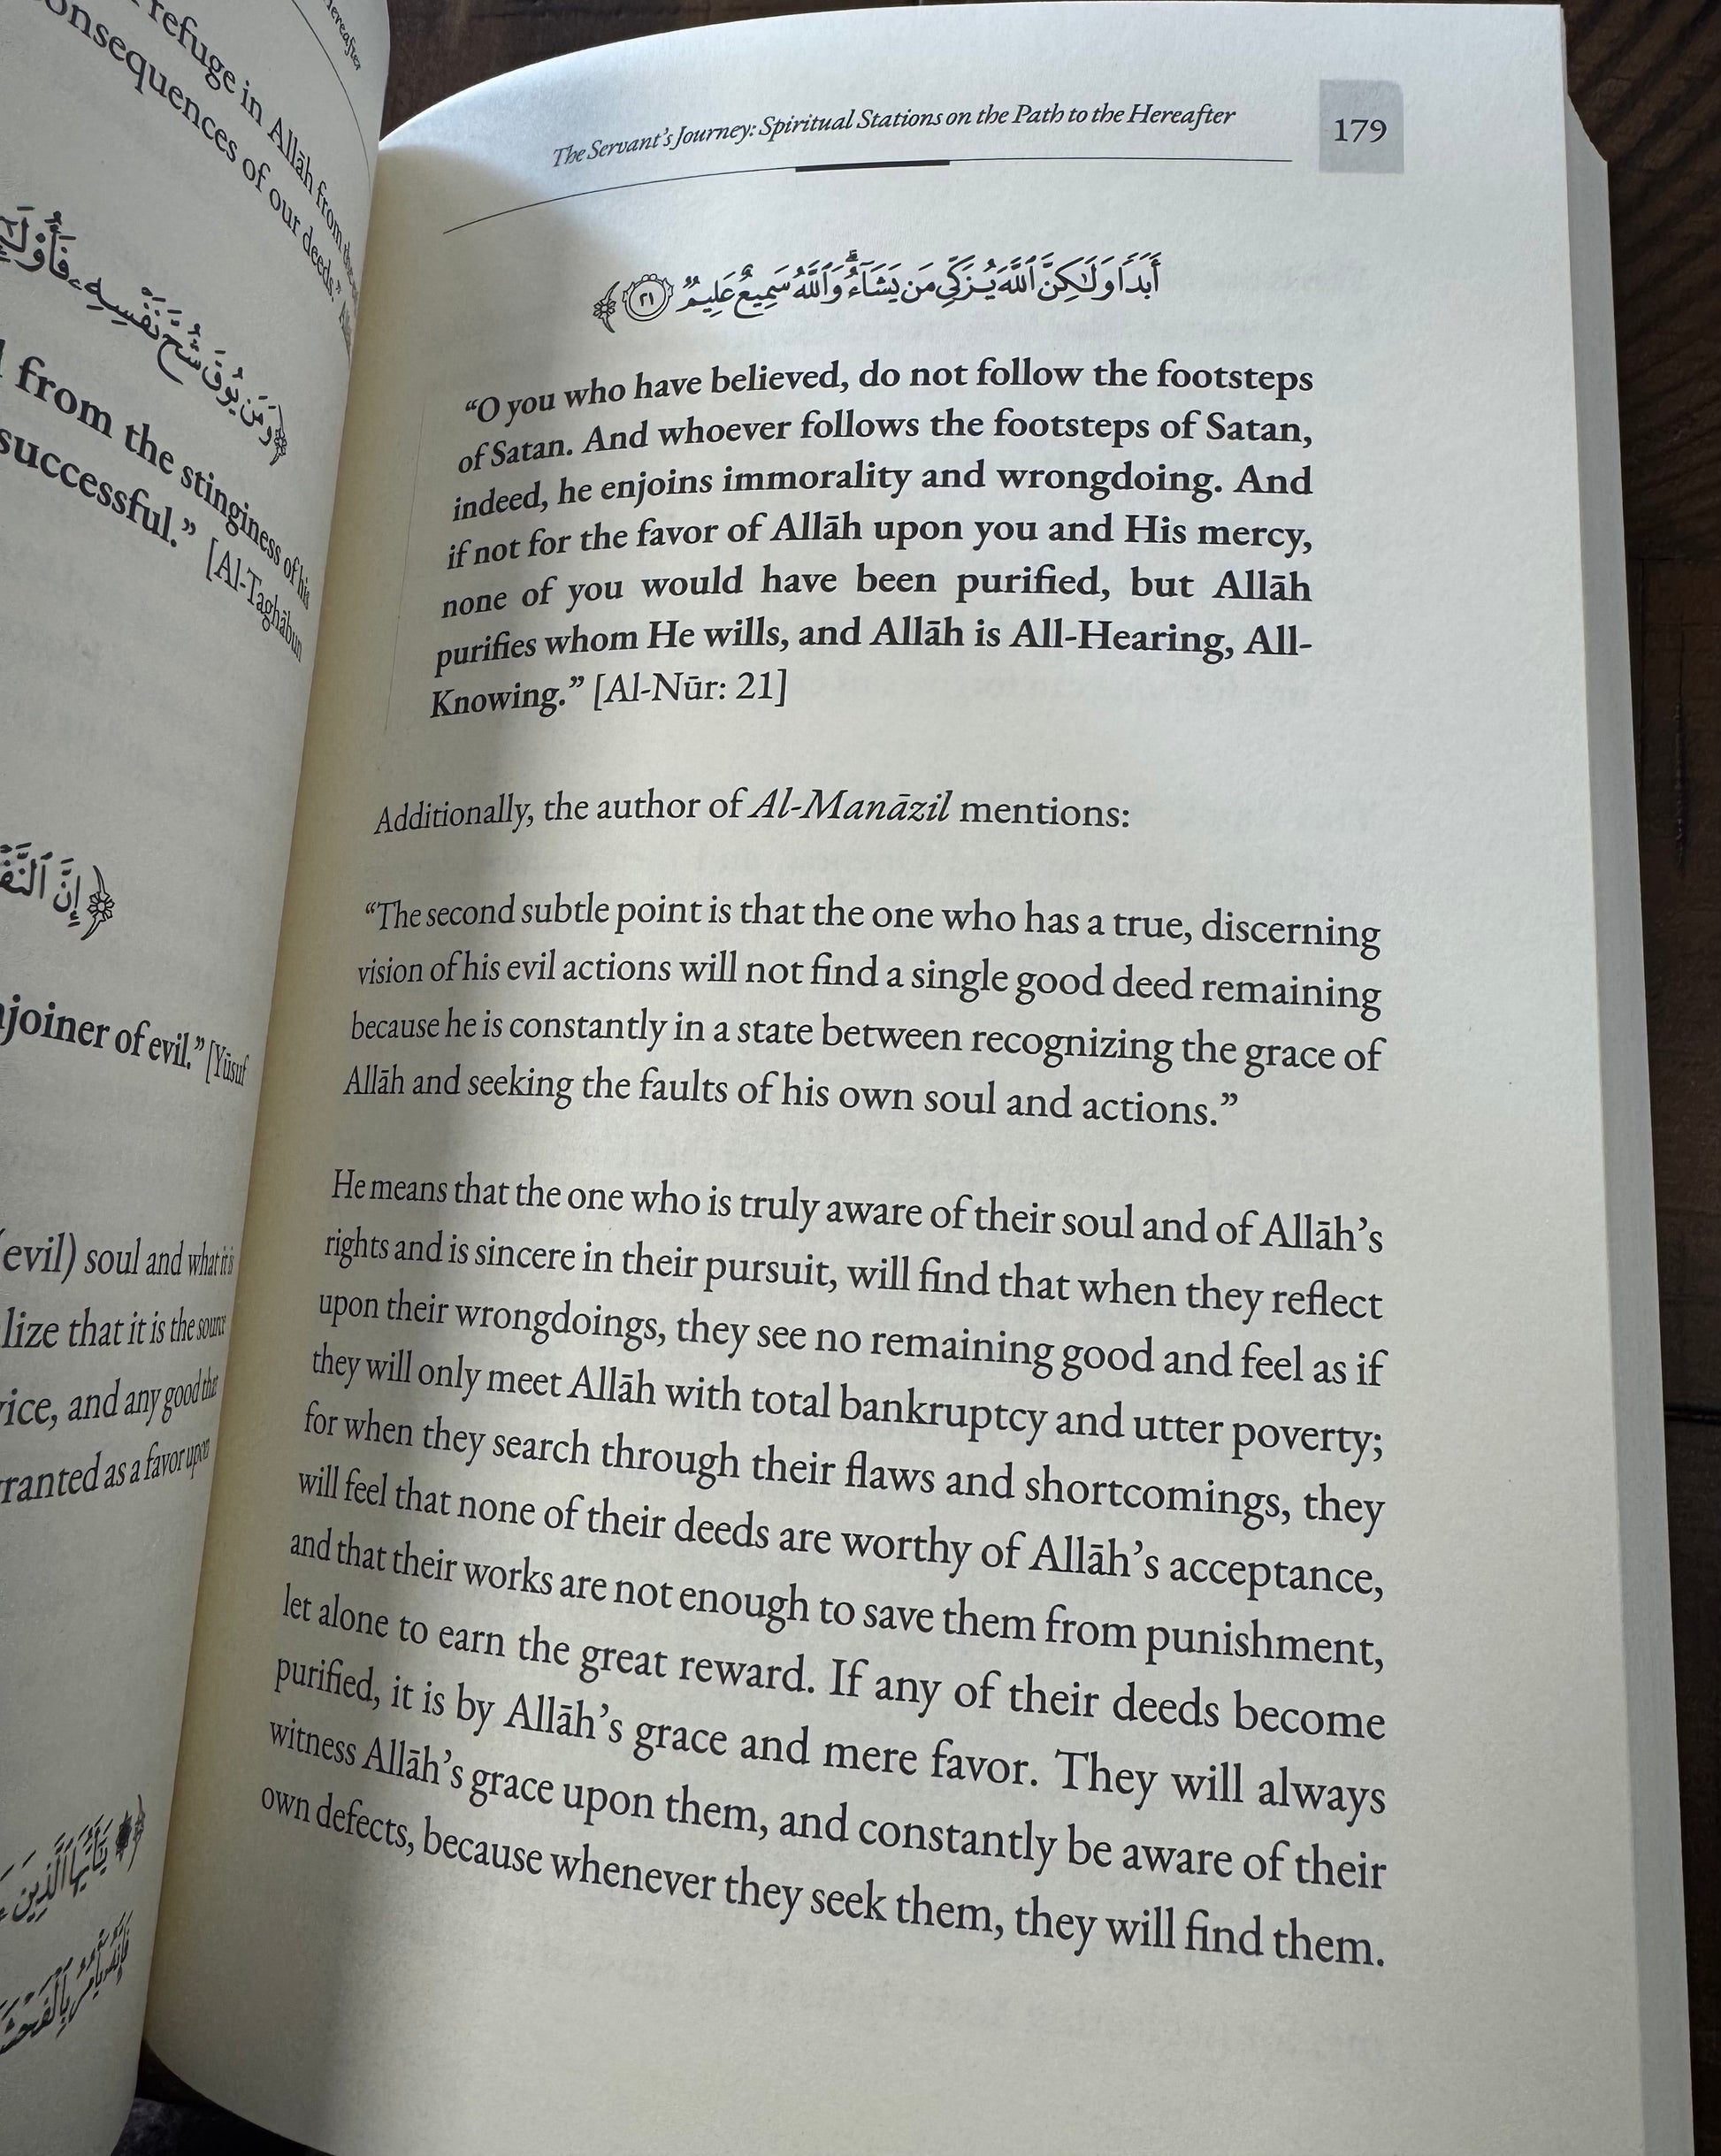 refuge in Allāh from
consequences of our deeds."
وَمَن يُوقَ شُحَّ نَفْسِهِۦ فَأُو۟لَـٰٓ
from the stinginess of his
successful.” [Al-Taghābun
إِنَّ ٱلنَّفْ
joiner of evil.” [Yūsuf
(evil) soul and what it is
lize that it is the source
ice, and any good that
ranted as a favor upon
يَـٰٓأَيُّهَا ٱلَّذِينَ
The Servant’s Journey: Spiritual Stations on the Path to the Hereafter
179
أَبَدًا وَلَـٰكِنَّ ٱللَّهَ يُزَكِّى مَن يَشَآءُ ۗ وَٱللَّهُ سَمِيعٌ عَلِيمٌ ٢١
“O you who have believed, do not follow the footsteps
of Satan. And whoever follows the footsteps of Satan,
indeed, he enjoins immorality and wrongdoing. And
if not for the favor of Allāh upon you and His mercy,
none of you would have been purified, but Allāh
purifies whom He wills, and Allāh is All-Hearing, All-
Knowing.” [Al-Nūr: 21]
Additionally, the author of Al-Manāzil mentions:
“The second subtle point is that the one who has a true, discerning
vision of his evil actions will not find a single good deed remaining
because he is constantly in a state between recognizing the grace of
Allāh and seeking the faults of his own soul and actions.”
He means that the one who is truly aware of their soul and of Allāh’s
rights and is sincere in their pursuit, will find that when they reflect
upon their wrongdoings, they see no remaining good and feel as if
they will only meet Allāh with total bankruptcy and utter poverty;
for when they search through their flaws and shortcomings, they
will feel that none of their deeds are worthy of Allāh’s acceptance,
and that their works are not enough to save them from punishment,
let alone to earn the great reward. If any of their deeds become
purified, it is by Allāh’s grace and mere favor. They will always
witness Allāh’s grace upon them, and constantly be aware of their
own defects, because whenever they seek them, they will find them.